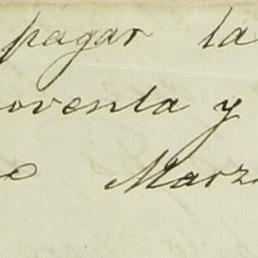 pagar la
oventa y
e Marz